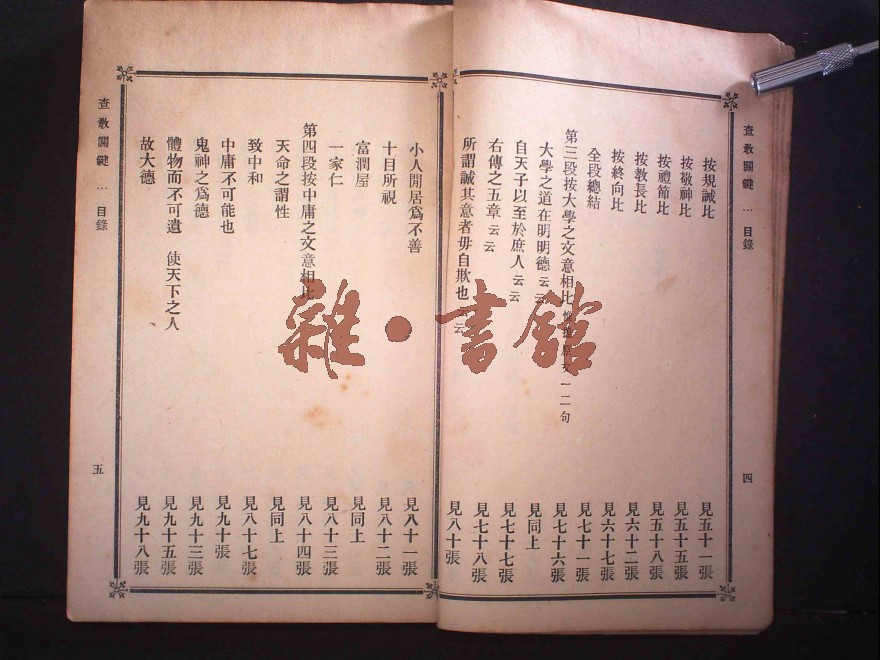 查敎關鍵 … 目錄
四
按規誡比 見五十一張
按敬神比 見五十五張
按禮節比 見五十八張
按教長比 見六十二張
按終向比 見六十七張
全段總結 見七十一張
第三段按大學之文意相比 一二句 見七十六張
大學之道在明明德云云 見七十七張
自天子以至於庶人云云 見同上
右傳之五章云云 見七十七張
所謂誠其意者毋自欺也云 見八十張
小人閒居爲不善 見八十一張
十目所視 見八十二張
富潤屋 見同上
一家仁 見八十三張
第四段按中庸之文意相比 見八十四張
天命之謂性 見同上
致中和 見八十七張
中庸不可能也 見九十張
鬼神之爲德 見九十三張
體物而不可遺 使天下之人 見九十五張
故大德 見九十八張
查敎關鍵 … 目錄
五
雜·書館